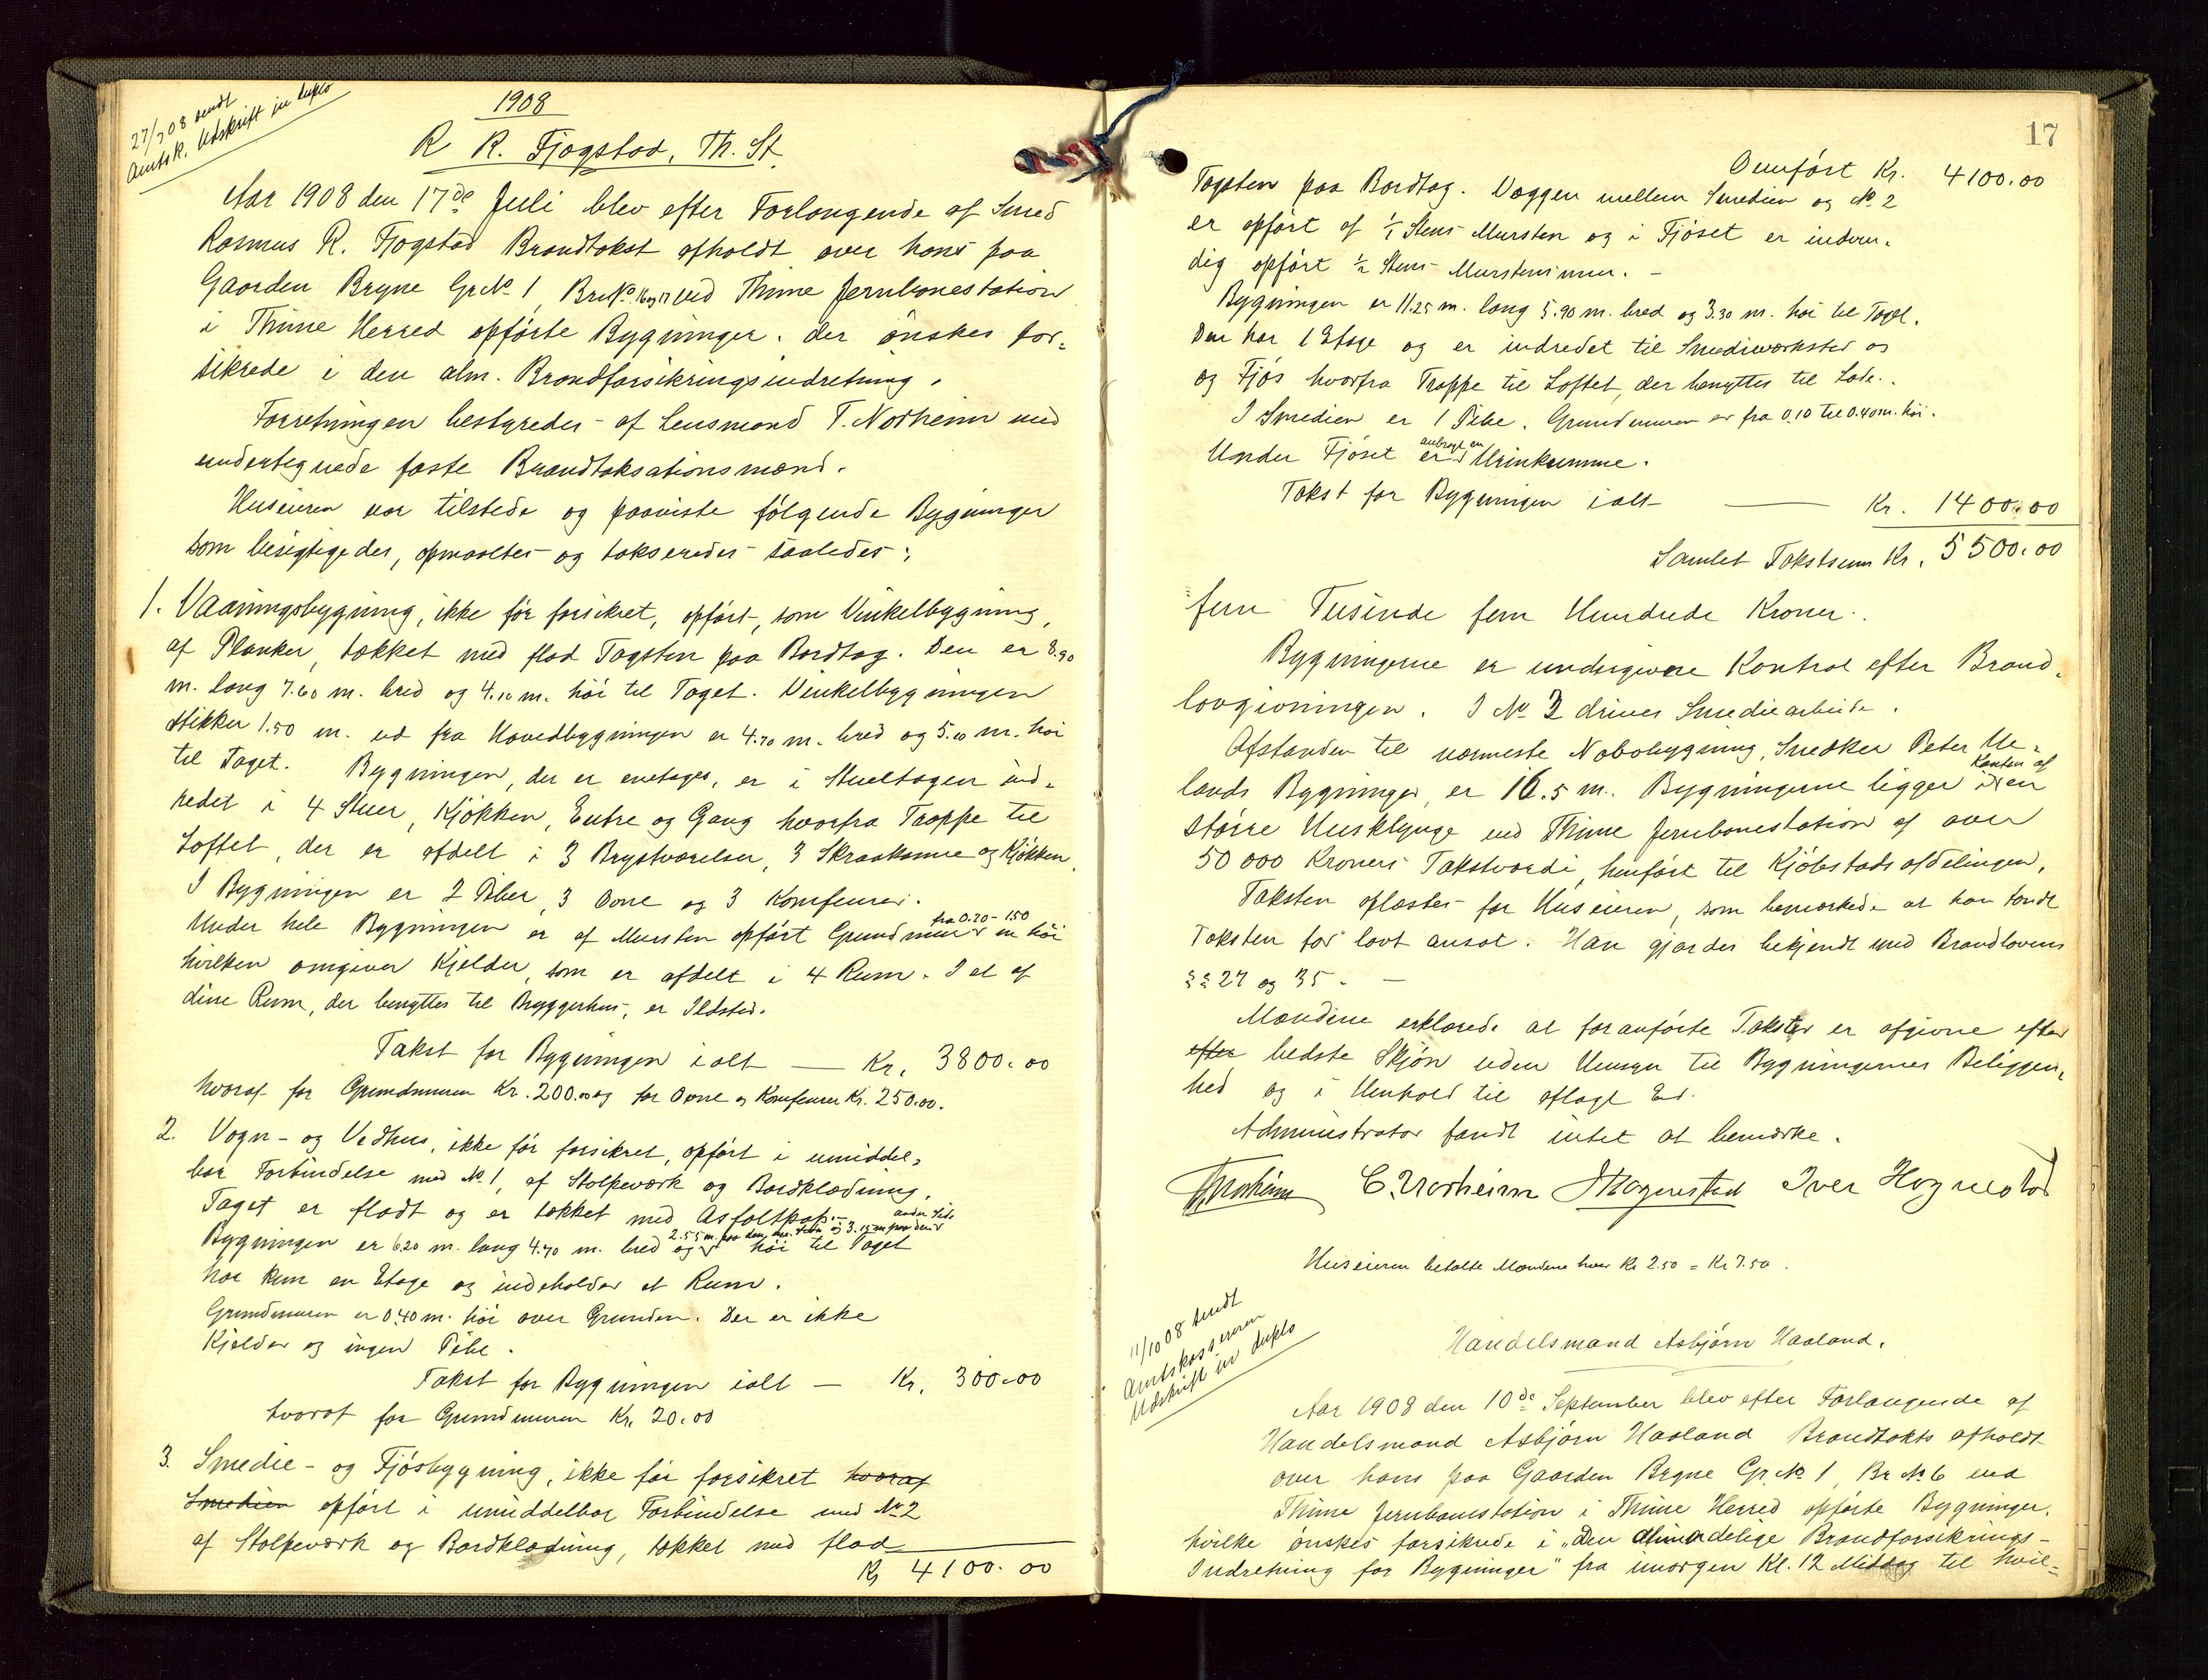 27/7 08 sendt
Amtsk. Udskrift in duplo
1908
R R. Fjogstad, Th. St.
Aar 1908 den 17de Juli blev efter Forlangende af Smed
Rasmus R. Fjogstad Brandtakst afholdt over hans paa
Gaarden Bryne Gr.No. 1 Br.No. 16 og 17 ved Thime Jernbanestation
i Thime Herred opførte Bygninger, der ønskes for-
sikrede i den alm. Brandforsikringsindretning.
Forretningen bestyredes af Lensmand T. Norheim med
undertegnede faste Brandtaksationsmænd.
Huseieren var tilstede og paaviste følgende Bygninger
som besigtigedes, opmaaltes og takseredes saaledes:
1. Vaaningsbygning, ikke før forsikret, opført, som Vinkelbygning,
af Planker, tækket med flad Tagsten paa Bordtag. Den er 8.90
m. lang 7.60 m. bred og 4.10 m. høi til Taget. Vinkelbygningen
stikker 1.50 m. ud fra Hovedbygningen er 4.70 m. bred og 5.10 m. høi
til Taget. Bygningen, der er enetages, er i Stueetagen ind-
redet i 4 Stuer, Kjøkken, Entre og Gang hvorfra Trappe til
Loftet, der er afdelt i 3 Brystværelser, 3 Skraakamre og Kjøkken.
I Bygningen er 2 Piber, 3 Ovne og 3 Komfeurer.
Under hele Bygningen er af Mursten opført Grundmur fra 0.20 - 1.50 m høi
hvilken omgiver Kjelder, som er afdelt i 4 Rum. I et af
disse Rum, der benyttes til Bryggerhus, er Ildsted.
Takst for Bygningen ialt — Kr. 3800.00
hvoraf for Grundmuren Kr. 200.00 og for Ovne og Komfeurer Kr. 250.00.
2. Vogn- og Vedhus, ikke før forsikret, opført i umiddel-
bar Forbindelse med No. 1, af Stolpeværk og Bordklædning.
Taget er fladt og er tækket med Asfaltpap.
Bygningen er 6.20 m. lang 4.70 m. bred og 2.55 m. paa den ene Side og 3.15 m paa den anden Side høi til Taget
har kun en Etage og indeholder et Rum.
Grundmuren er 0.40 m. høi over Grunden. Der er ikke
Kjelder og ingen Pibe.
Takst for Bygningen ialt — Kr. 300.00
hvoraf for Grundmuren Kr. 20.00
3. Smedie- og Fjøsbygning, ikke før forsikret hvoraf
Smedien opført i umiddelbar Forbindelse med No 2
af Stolpeværk og Bordklædning, tækket med flad
Kr 4100.00
17
Overført Kr. 4100.00
Tagsten paa Bordtag. Væggen mellem Smedien og No. 2
er opført af 1/1 Stens Mursten og i Fjøset er indven-
dig opført 1/2 Stens Murstensmur. -
Bygningen er 11.25 m. lang 5.90 m. bred og 3.30 m. høi til Taget.
Den har 1 Etage og er indredet til Smedieværksted og
og Fjøs hvorfra Trappe til Loftet, der benyttes til Lade.
I Smedien er 1 Pibe. Grundmuren er fra 0.10 til 0.40 m. høi.
Under Fjøset er anbragt en Urinkumme.
Takst for Bygningen ialt — Kr. 1400.00
Samlet Takstsum Kr. 5500.00
fem Tusinde fem Hundrede Kroner.
Bygningerne er undergivne Kontrol efter Brand-
lovgivningen. I No 3 drives Smediearbeide.
Afstanden til nærmeste Nabobygning, Snedker Peter Ue-
lands Bygninger, er 16.5 m. Bygningerne ligger i Kanten af en
større Husklynge ved Thime Jernbanestation af over
50 000 Kroners Takstværdi, henført til Kjøbstadsafdelingen.
Taksten oplæstes for Huseieren, som bemærkede at han fandt
Taksten for lavt ansat. Han gjordes bekjendt med Brandlovens
§§ 27 og 35. -
Mændene erklærede at foranførte Takster er afgivne efter
efter bedste Skjøn uden Hensyn til Bygningernes Beliggen-
hed og i Henhold til aflagt Ed.
Administrator fandt intet at bemærke.
T. Norheim C. Norheim Hognestad Iver Hognestad
Huseieren betalte Mændene hver Kr 2.50 = Kr 7.50.
11/10 08 sendt
Amtskassereren
Udskrift in duplo
Handelsmand Asbjørn Haaland.
Aar 1908 den 10de September blev efter Forlangende af
Handelsmand Asbjørn Haaland Brandtakts afholdt
over hans paa Gaarden Bryne Gr.No. 1 Br.No 6 ved
Thime Jernbanestation i Thime Herred opførte Bygninger,
hvilke ønskes forsikrede i "Den almindelige Brandforsikrings-
Indretning for Bygninger" fra imorgen Kl. 12 Middag til hvil-